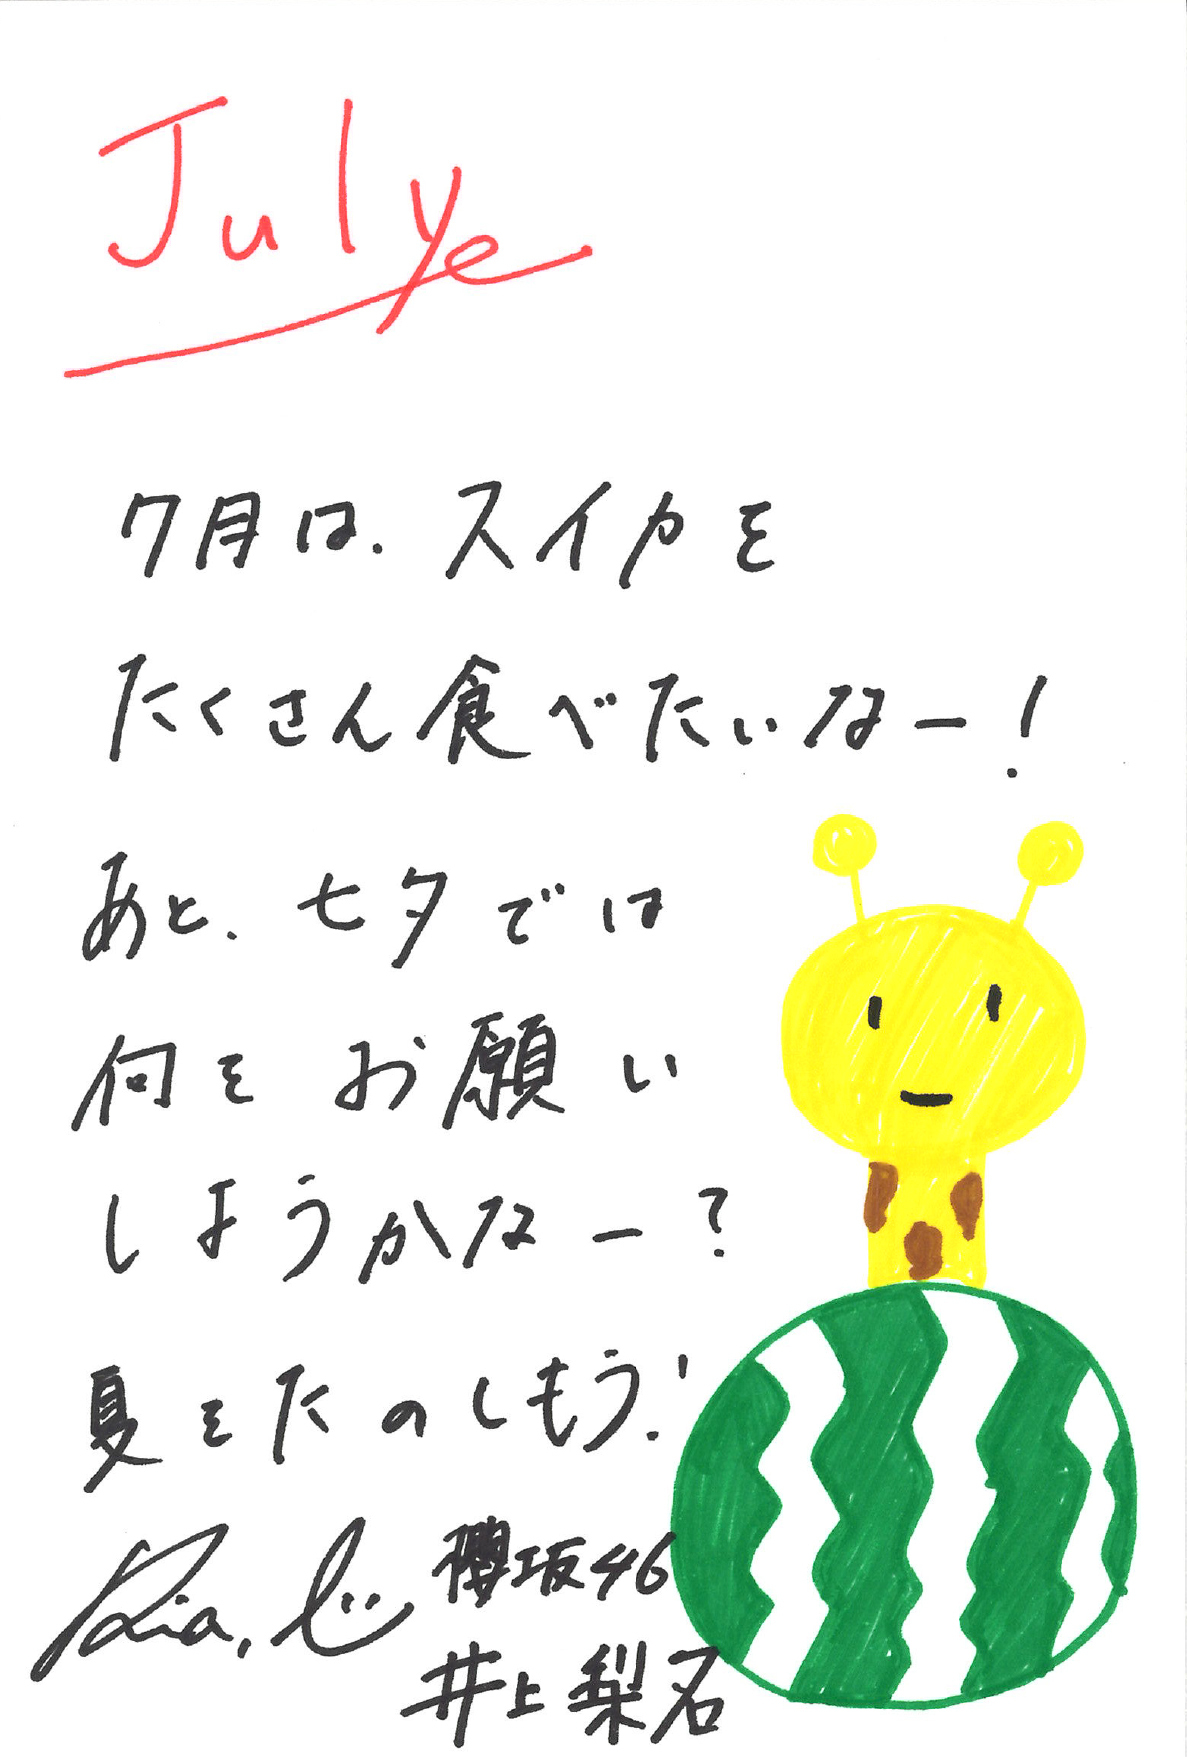 July
7月は、スイカを
たくさん食べたいなー!
あと、七夕では
何をお願い
しようかなー?
夏をたのしもう!
櫻坂46
井上梨名